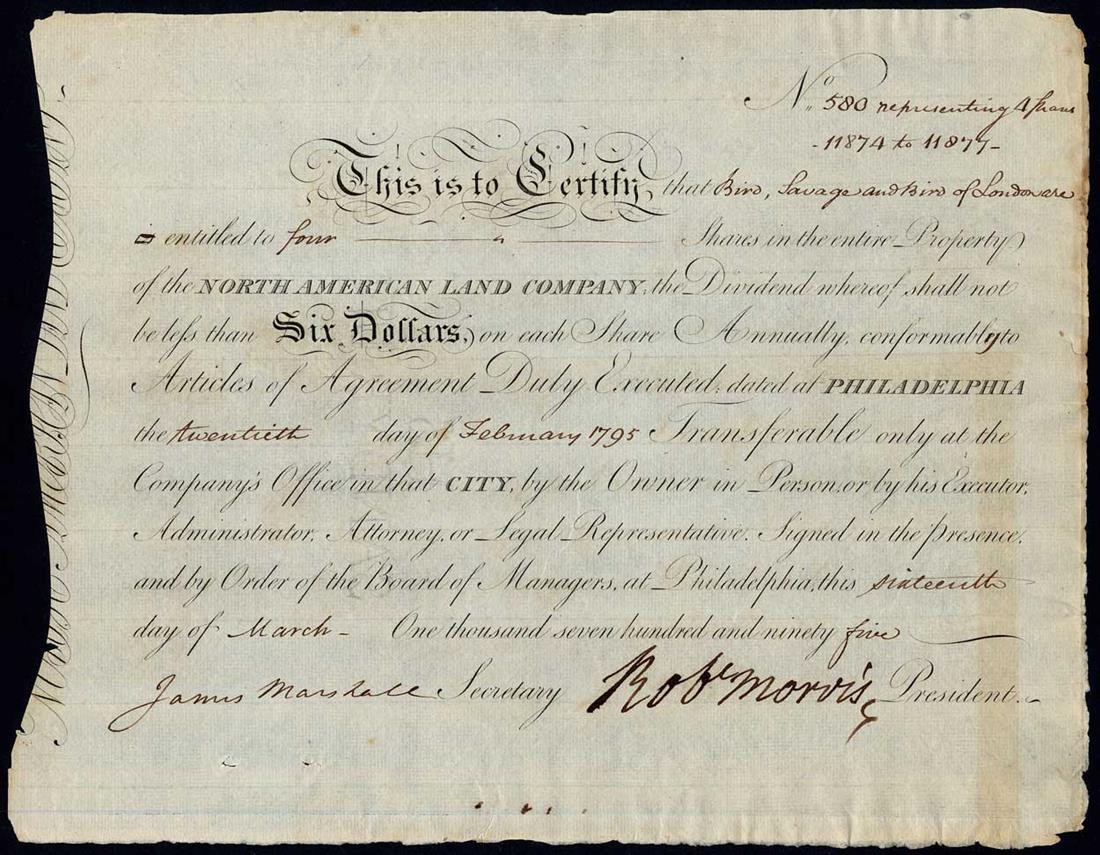 No. 580 representing 4 Shares
- 11874 to 11877 -
This is to Certify, that Bird, Savage and Bird of London are
is entitled to four Shares in the entire Property
of the NORTH AMERICAN LAND COMPANY, the Dividend whereof shall not
be leſs than Six Dollars, on each Share Annually, conformably to
Articles of Agreement Duly Executed, dated at PHILADELPHIA
the twentieth day of February 1795 Transferable only at the
Company's Office in that CITY, by the Owner in Person, or by his Executor,
Administrator, Attorney, or Legal Representative. Signed in the presence,
and by Order of the Board of Managers, at Philadelphia, this sixteenth
day of March - One thousand seven hundred and ninety five
James Marshall Secretary Robt Morris, President.